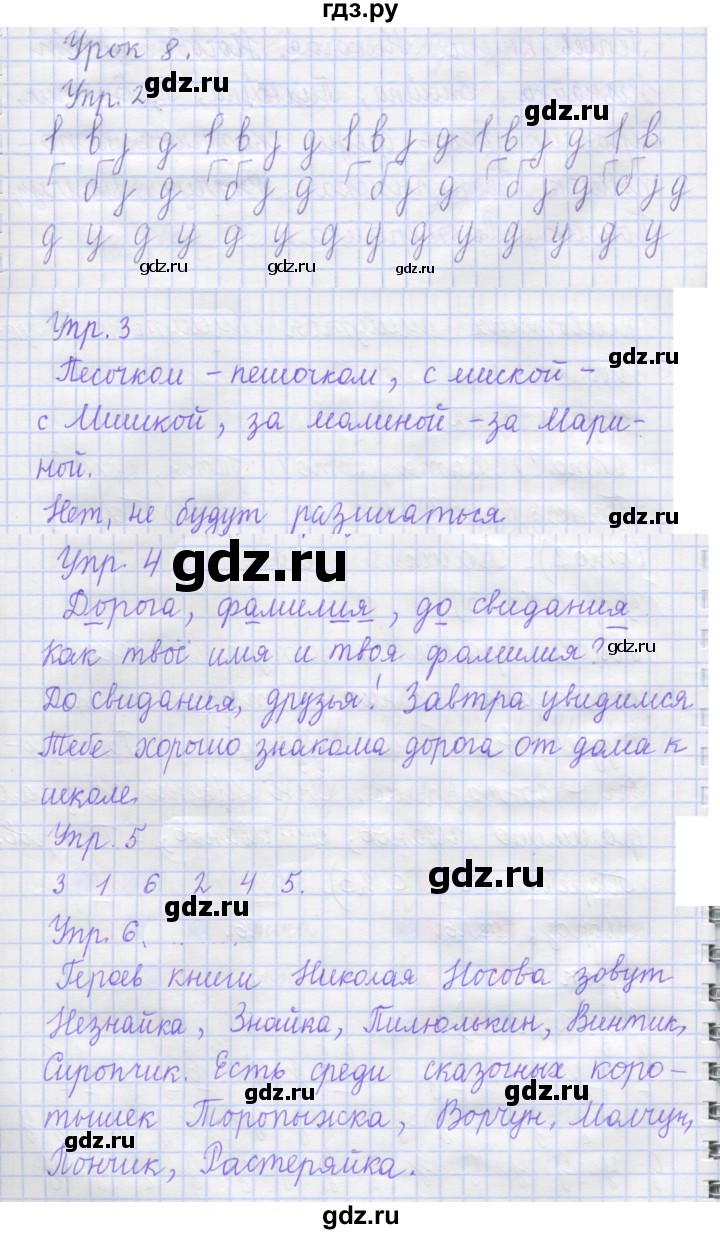 гдз.ру
Урок 8.
Упр. 2
gdz.ru
gdz.ru
в у д в у д в у д в у д в
б у д б у д б у д б у д б у д
д у д у д у д у д у д у д у
gdz.ru gdz.ru gdz.ru
Упр. 3
gdz.ru
Песочком - пешочком, с миской -
с Мишкой, за малиной - за Мари-
ной.
Нет, не будут различаться
gdz.ru
Упр. 4
gdz.ru
Дорога, фамилия, до свидания
Как твоё имя и твоя фамилия?
gdz.ru
До свидания, друзья! Завтра увидимся
Тебе хорошо знакома дорога от дома к
школе.
Упр. 5
3 1 6 2 4 5.
gdz.ru
gdz.ru
Упр. 6.
Героев книги Николая Носова зовут
Незнайка, Знайка, Пилюлькин, Винтик,
Сиропчик. Есть среди сказочных коро-
gdz.ru gdz.ru
тышек Торопыжка, Ворчун, Молчун,
gdz.ru
Пончик, Растеряйка.
gdz.ru